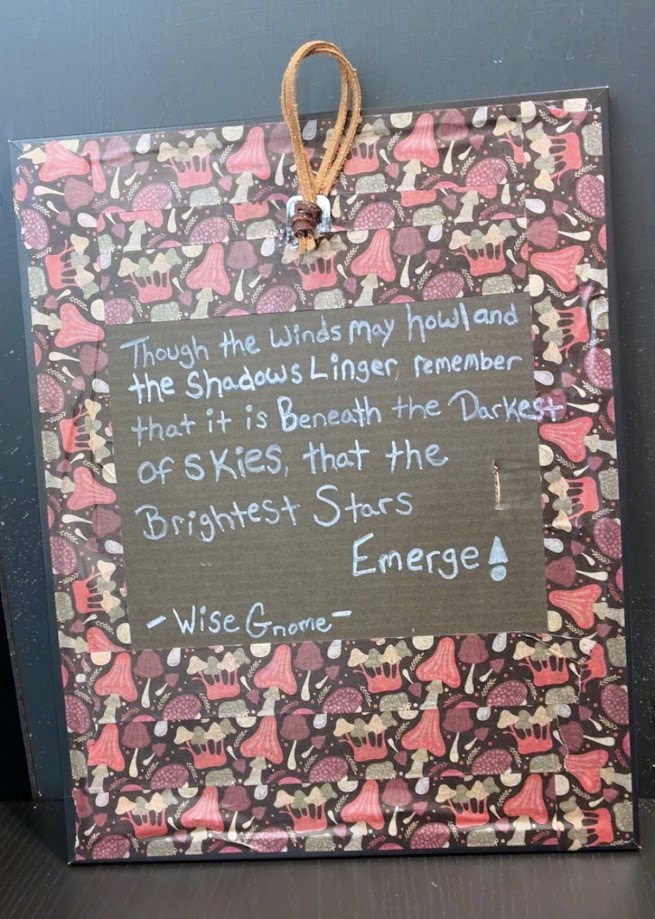 Though the Winds May howl and
the Shadows Linger, remember
that it is Beneath the Darkest
of skies, that the
Brightest Stars
Emerge!
- Wise Gnome -